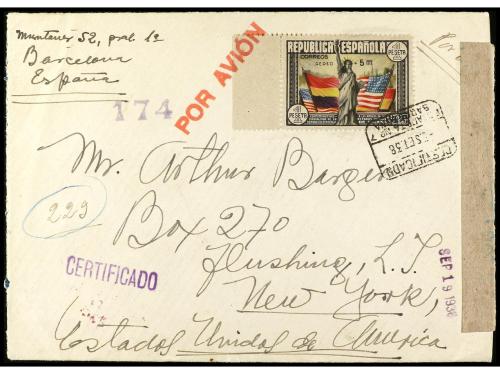 Muntaner 52, pral. 1a
Barcelona
España
174
POR AVIÓN
REPUBLICA ESPAÑOLA
CORREOS
AEREO + 5 Pts
1 PESETA
1 PESETA
CERTIFICADO
BARCELONA
SET. 38
Mr. Arthur Barger
229
Box 270
Flushing, L.I.
CERTIFICADO
New York,
SEP 19 1938
Estados Unidos de America